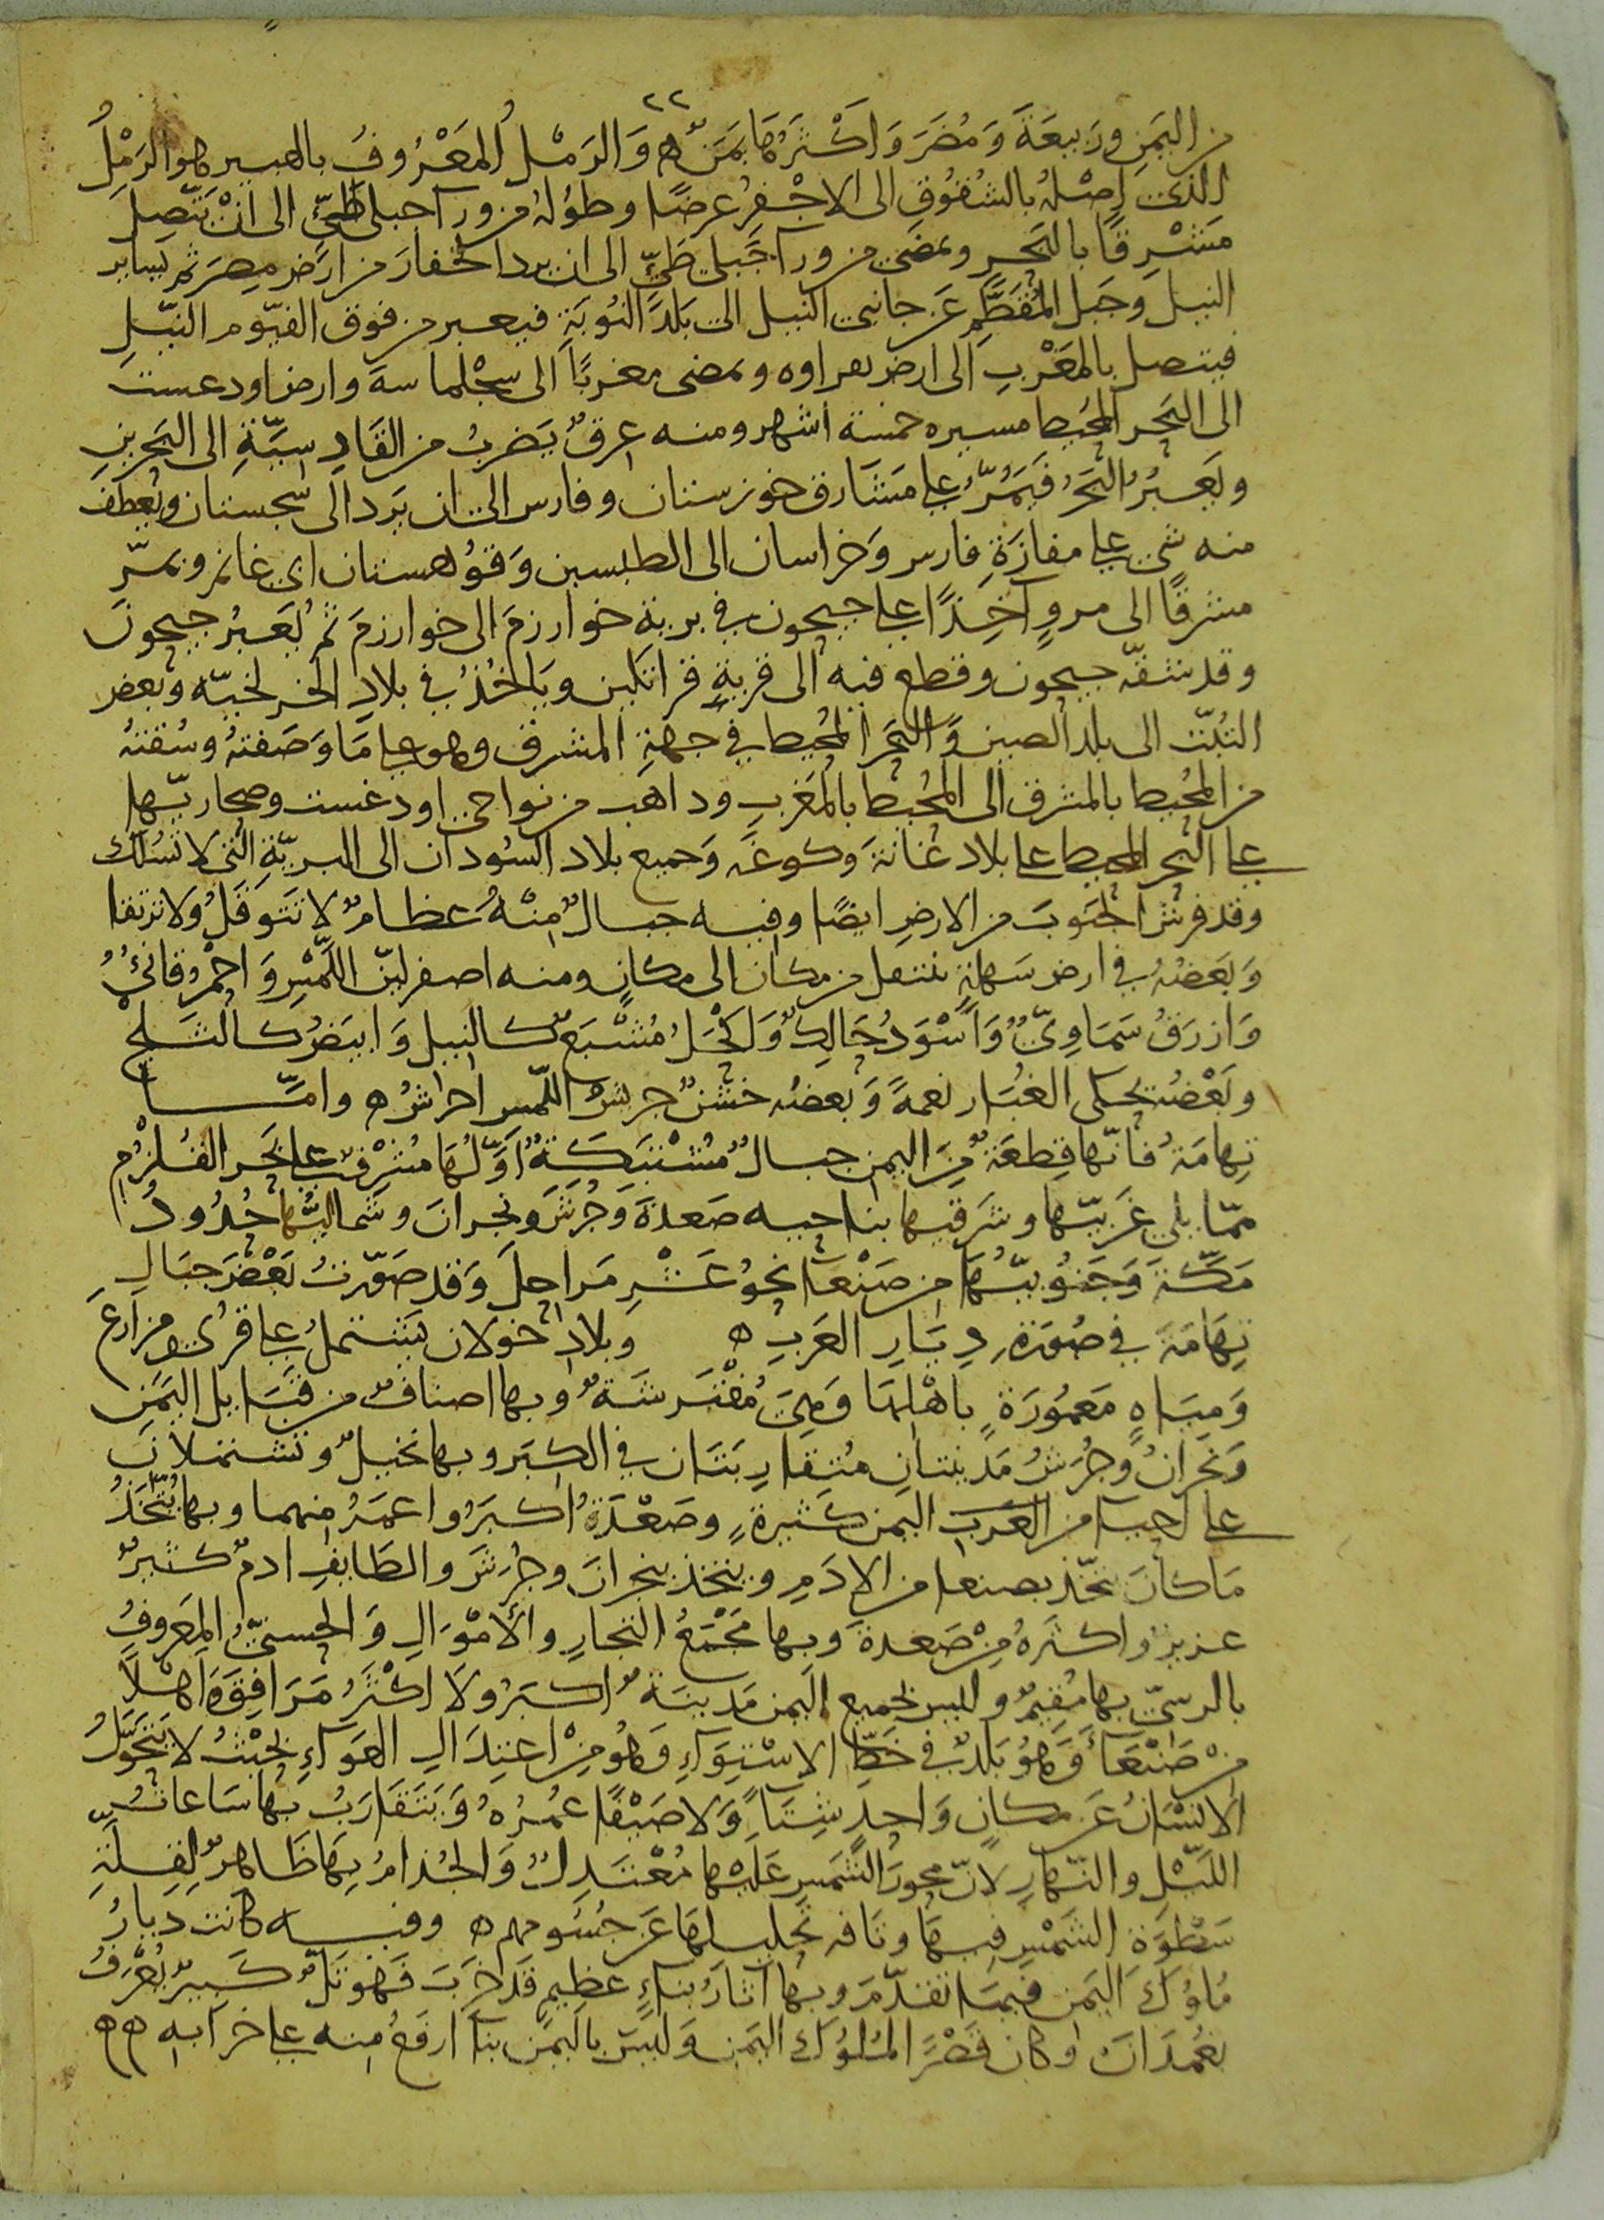 ٢٢
من اليَمَنِ ورَبيعَةَ وَمُضَرَ وَاكْثَرُهَا يَمَنٌ ه وَالرَمْلُ المَعْرُوفُ بالهبير هو الرَمْلُ
الذى اصْلهُ بالشُقُوقِ الى الاجْفرُ عرضًا وطوُلهُ من ورآ جبلى طَيِّ الى انْ يَتّصِلَ
مَشْرِقًا بالبَحرِ ويمضى من ورآ جَبلى طَىِّ الى ان يرد الجفارَ من ارَض مِصرَ ثم يساير
النيل وجَبل المُقَطَّمِ عَن جانبى النيل الى بَلَد النُوبَةِ فيعبر من فوق الفيّوم النيّلِ
فيتصل بالمَغْربِ الى ارض نفراوه ويمضى مغربًا الى سِجْلماسةَ وارض اودعست
الى البَحر المُحيط مسيره خمسة اشهر ومنه عِرقٌ يَضربُ من القَادِسِيّةِ الى البَحرين
ويَعبُرُ البَحرُ فَيَمُرُّ على مَشَارق خوزستان وفارس الى ان يَرد الى سجستان ويَعطفُ
منه شى على مفازَةِ فارس وَخراسان الى الطبسين وَقوُهستان اى غانم ويمرّ
مشرقًا الى مروٍ آخِذًا على جيحون فى برية خوارزمَ الى خوارزمَ ثم يُعَبرُ جيحونَ
وقد شقّه جيحون وقطع فيه الى قريةِ قراتكين ويَاخُذُ فى بلاد الخرلخيّه وبعض
التُبّت الى بلد الصين وَ البَحر المُحيط فى جهةِ المشرق وهو على مَا وَصَفتهُ وسُقتهُ
من المُحيط بالمشرق الى المُحيط بالمَغربِ وداهب من نواحى اودغست وصحاريّها
على البَحر المحيط على بلاد غَانةَ وكوغَه وَجميع بلاد السُودان الى البريّةِ التى لا تُسْلكُ
وقد فرش الجَنوبَ من الارضِ ايضًا وفيه جبالٌ مِنْهُ عظامٌ لا تتوقَلُ ولا ترتقا
وَبَعضهُ فى ارض سَهلةٍ ينتقل من مكان الى مكانٍ ومنه اصفر ليّن اللَمْسِ وَاحمْرُ قانئٌ
وَازرَقُ سَمَاوِيٌّ وَاَسْوَدُ حَالِكٌ وَاكحْلُ مُشْبَعٌ كالنيل وَابيَضُ كالثلجِ
وبَعْضهُ يحكى الغُبَار نعمةً وَبعضهُ خشنٌ جرشُ اللّمس احراش ه وامّا
تِهامَة فانّها قِطعَةٌ مِن اليمن جبالٌ مُشْتبَكةٌ اَوّلهَا مُشرفٌ على بَحر القُلزُمِ
ممّا يلى غَربيّها وشَرقيها بناحيه صَعدةَ وَجُرشَ ونجرانَ وشمالِيُّها حُدُودَ
مَكّةَ وَجَنُوبيُّهَا مِن صَنْعآ نحوُ عَشْرِ مَراحِلَ وَقد صوّرتُ بَعْضَ جبَالِ
تِهَامَةَ فى صُورَةِ دِيَارِ العَربِ ه وبلاد خولان يَشتملُ على قُرًى ومزارعَ
وَمِيَاهٍ مَعمُورَةٍ باهْلهَا وَهِىَ مُفْترشَةٌ وبها اصنافٌ من قبَايل اليَمَنِ
وَنجرانُ وَجُرَشُ مَدينتان مُتقارِبَتَان فى الكِبَر وبها نخيلٌ وتشتملان
على احيا من العَرب اليمن كثيرةٍ وصَعْدَةُ اكبَرُ واعمَرُ منهما وبها يُتّخَذُ
مَا كانَ يتّخذ بصنعا من الادَمِ ويتخذ بنجرانَ وجُرَشَ والطَايفِ ادمٌ كثيرٌ
عزيزٌ واكثرهُ مِنْ صَعدةَ وبها مَجْتمَعُ التجارِ والامْوَالِ وَالحسنىُّ المعَروفُ
بالرسىّ بها مُقِيمٌ وليس بجميع اليمن مَدينَةٌ اكبرُ ولا اكثَرُ مَرَافِقَ وَاهْلاً
مِنْ صَنْعَآ وَهُوَ بَلدٌ فى خَطِّ الاسْتِوَآءِ وَهُو مِنْ اعتِدَالِ الهَوَآءِ بحَيْثُ لا يَتحَوّلُ
الانْسَانُ عَن مكانٍ وَاحدٍ شِتَآً وَلا صَيْفًا عُمرُهُ وَيَتَقَارَبُ بها سَاعاتُ
اللَيْلِ والنّهارِ لانّ محوَر الشَمسِ عَليْها مُعْتَدِلٌ وَالجُذامُ بِهَا ظَاهرٌ لِقِلةِ
سَطْوَةِ الشَمْسِ فيهَا وتافه تحليلهَا عَن جُسُومهم ه وفيه كانت ديارُ
مُلوُكَ اليَمَن فيمَا تقدّمَ وبها آثارُ بنآءٍ عظيمٍ قَد خَربَ فَهو تَلٌ كبَيرٌ يُعَرفُ
بغُمدَانَ وكان قَصْرًا لمُلوُكِ اليَمَنِ وَليسَ باليمَن بنآ ارفَعُ منه على خرابه ه ه